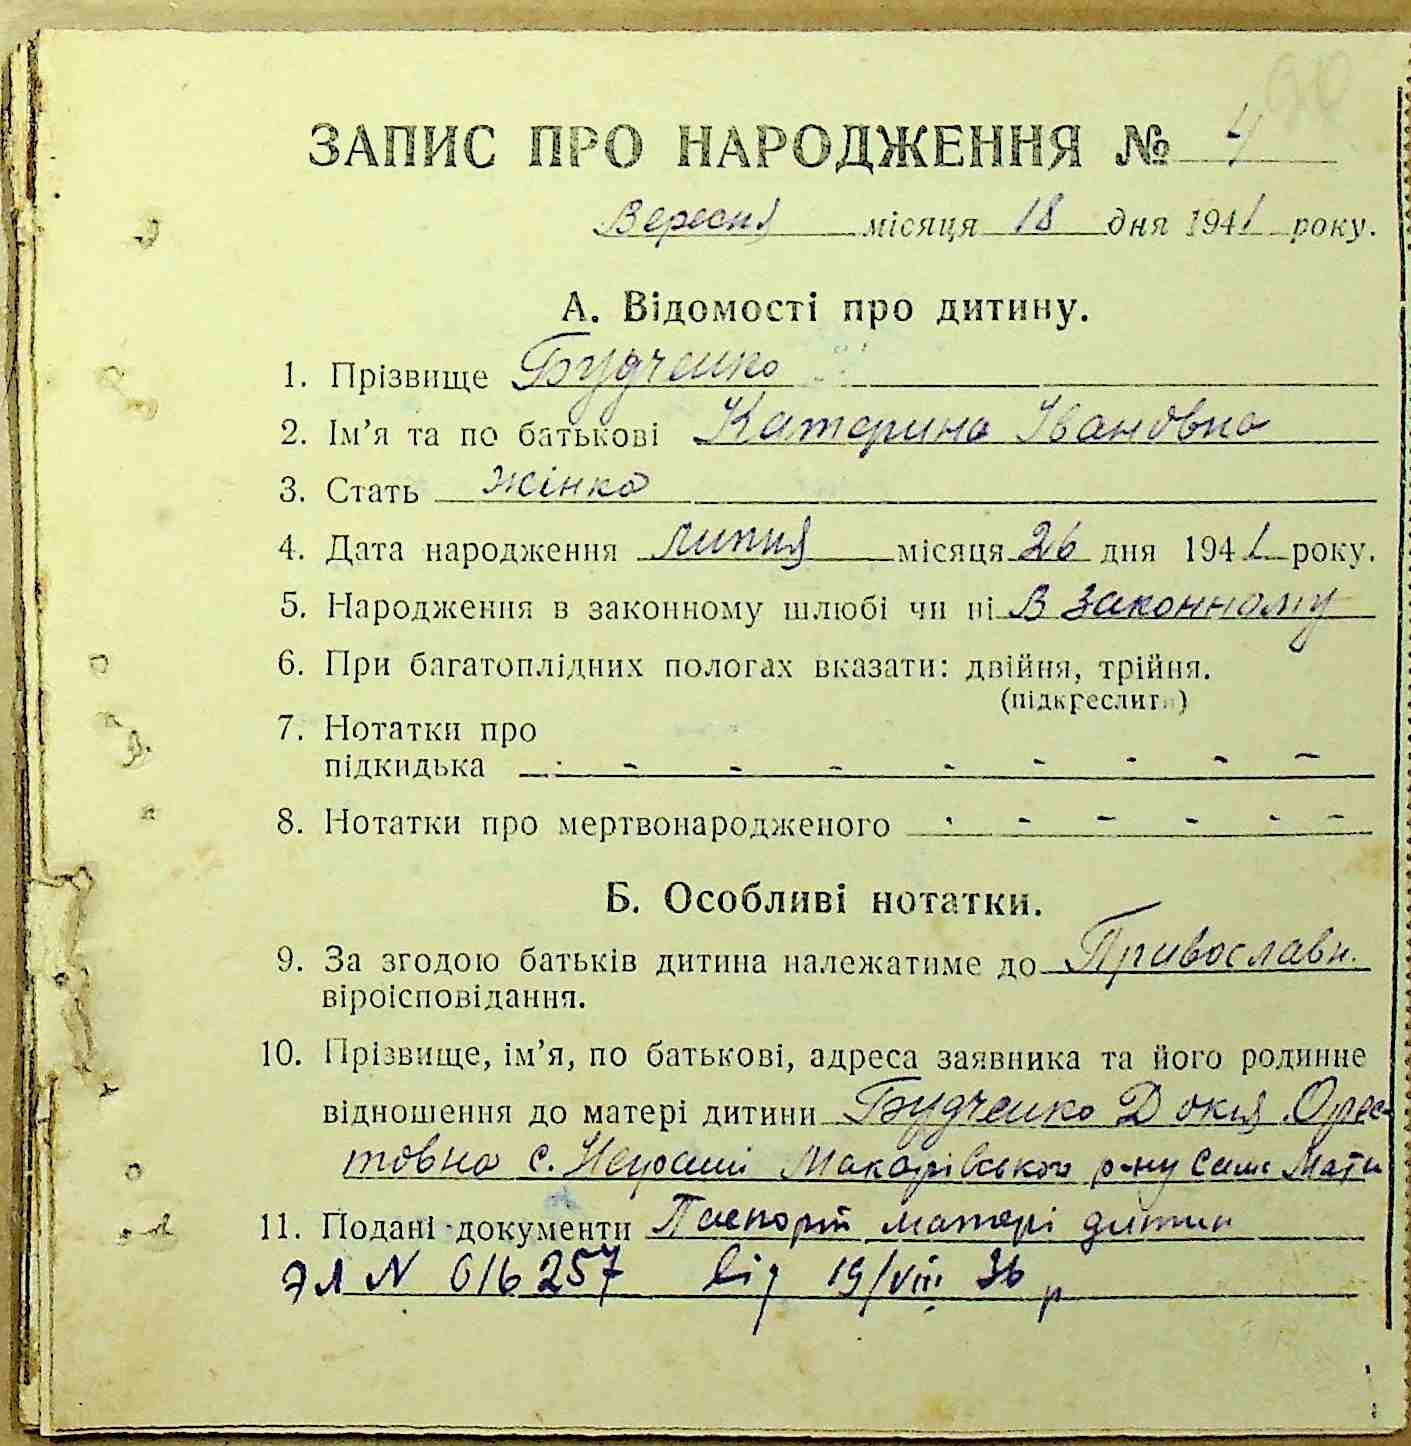 ЗАПИС ПРО НАРОДЖЕННЯ № 4
Вересня місяця 18 дня 1941 року.
А. Відомості про дитину.
1. Прізвище Будченко
2. Ім’я та по батькові Катерина Івановна
3. Стать жінка
4. Дата народження липня місяця 26 дня 1941 року.
5. Народження в законному шлюбі чи ні В законному
6. При багатоплідних пологах вказати: двійня, трійня.
(підкреслити)
7. Нотатки про
підкидька - - - - - - - - -
8. Нотатки про мертвонародженого - - - - - -
Б. Особливі нотатки.
9. За згодою батьків дитина належатиме до Православн.
віроісповідання.
10. Прізвище, ім’я, по батькові, адреса заявника та його родинне
відношення до матері дитини Будченко Докія Орес-
товна с. Макарівського р-ну сама Мати
11. Подані документи Паспорт матері дитин
ЭЛ N 616257 від 19/VIII 36 р